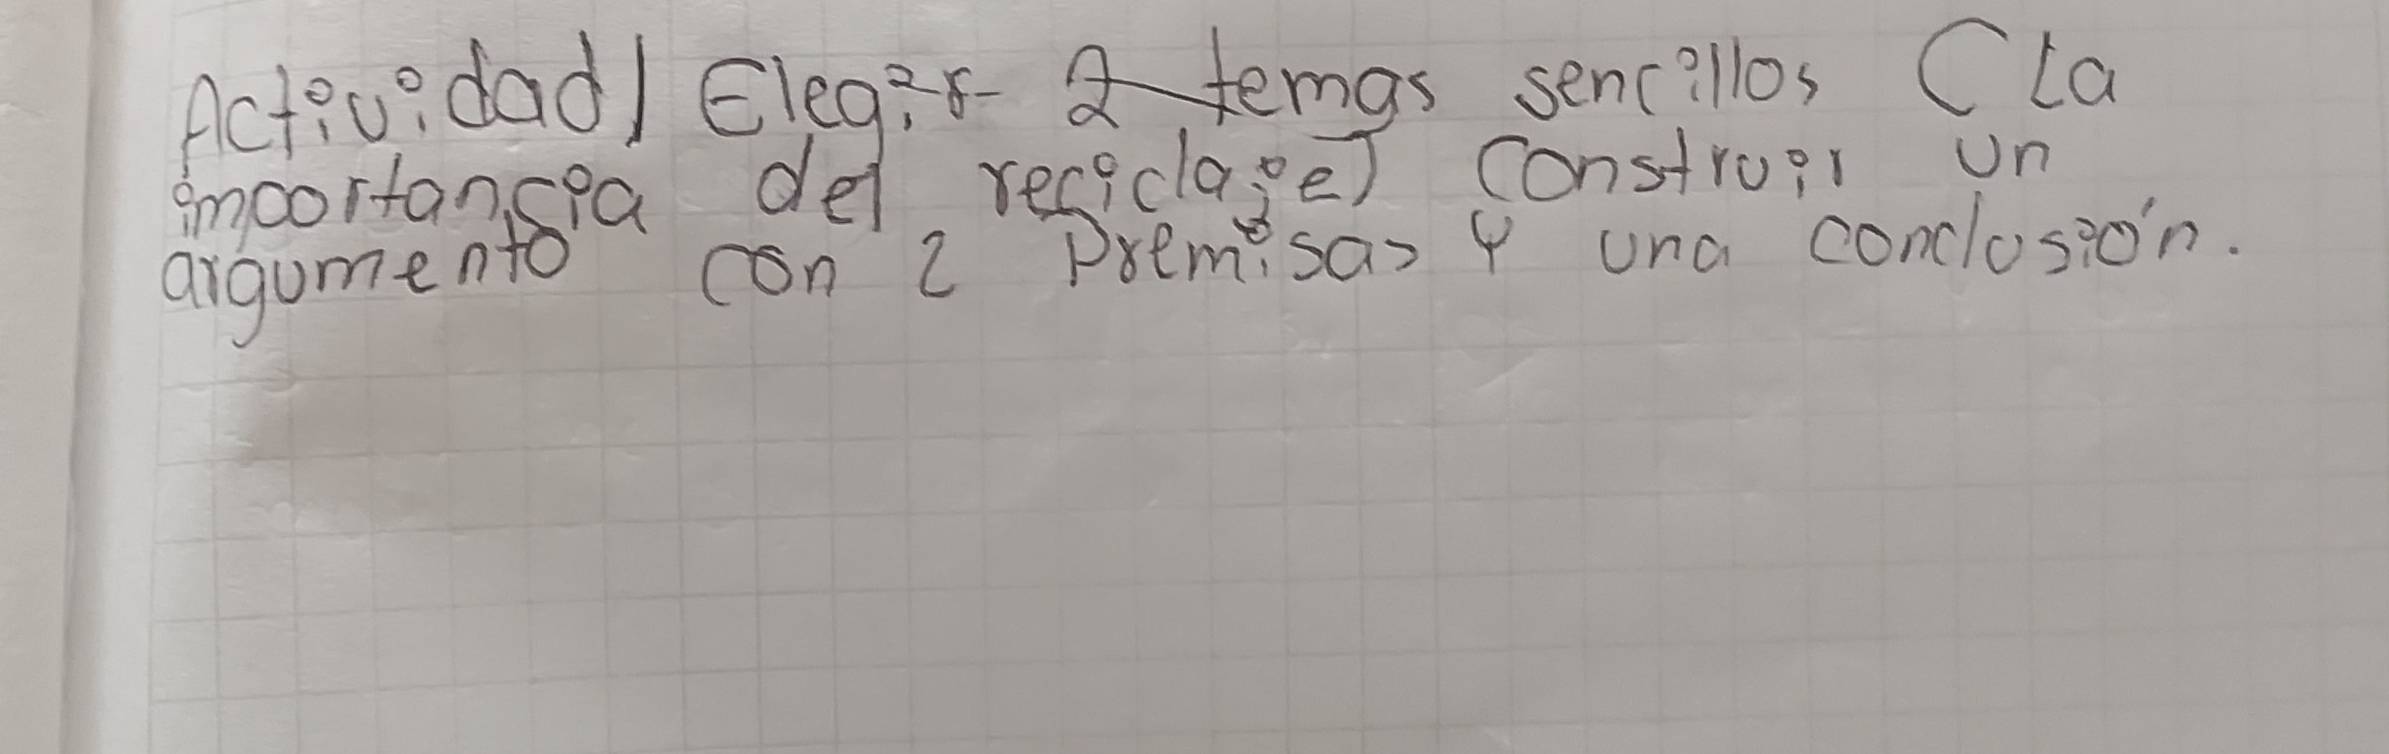 Actividad) Elegir 2 temas sencillos (La
importancia del reciclaje) Construir un
argumento con 2 Premisas y una conclusión.